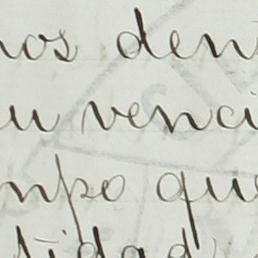 nos den
u venci
mpo que
tidad